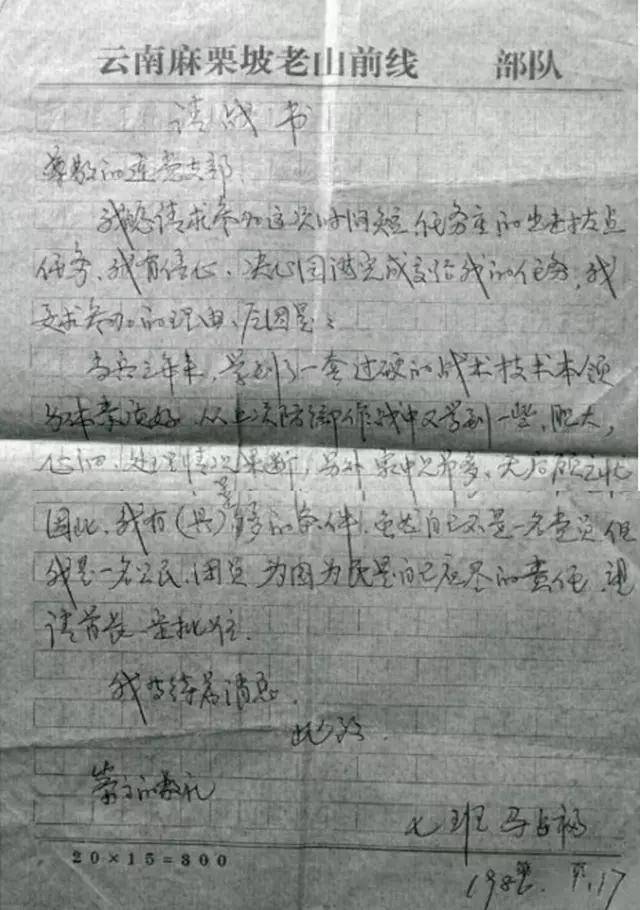 云南麻栗坡老山前线 部队
请战书
尊敬的连党支部
我恳请求参加这次时间短任务重的出击拔点
任务、我有信心、决心圆满完成交给我的任务，我
要求参加的理由、原因是：
当兵三年来，学到了一套过硬的战术技术本领
身体素质好，从上次防御作战中又学到一些，胆大，
心细，处理情况果断，另外家中兄弟多、无后顾之忧
因此，我有（具）够的条件，虽然自己不是一名党员但
我是一名公民、团员 为国为民是自己应尽的责任，望
请首长一定批准.
我等待着消息.
此致
崇高的敬礼
七班 马占福
20×15=300